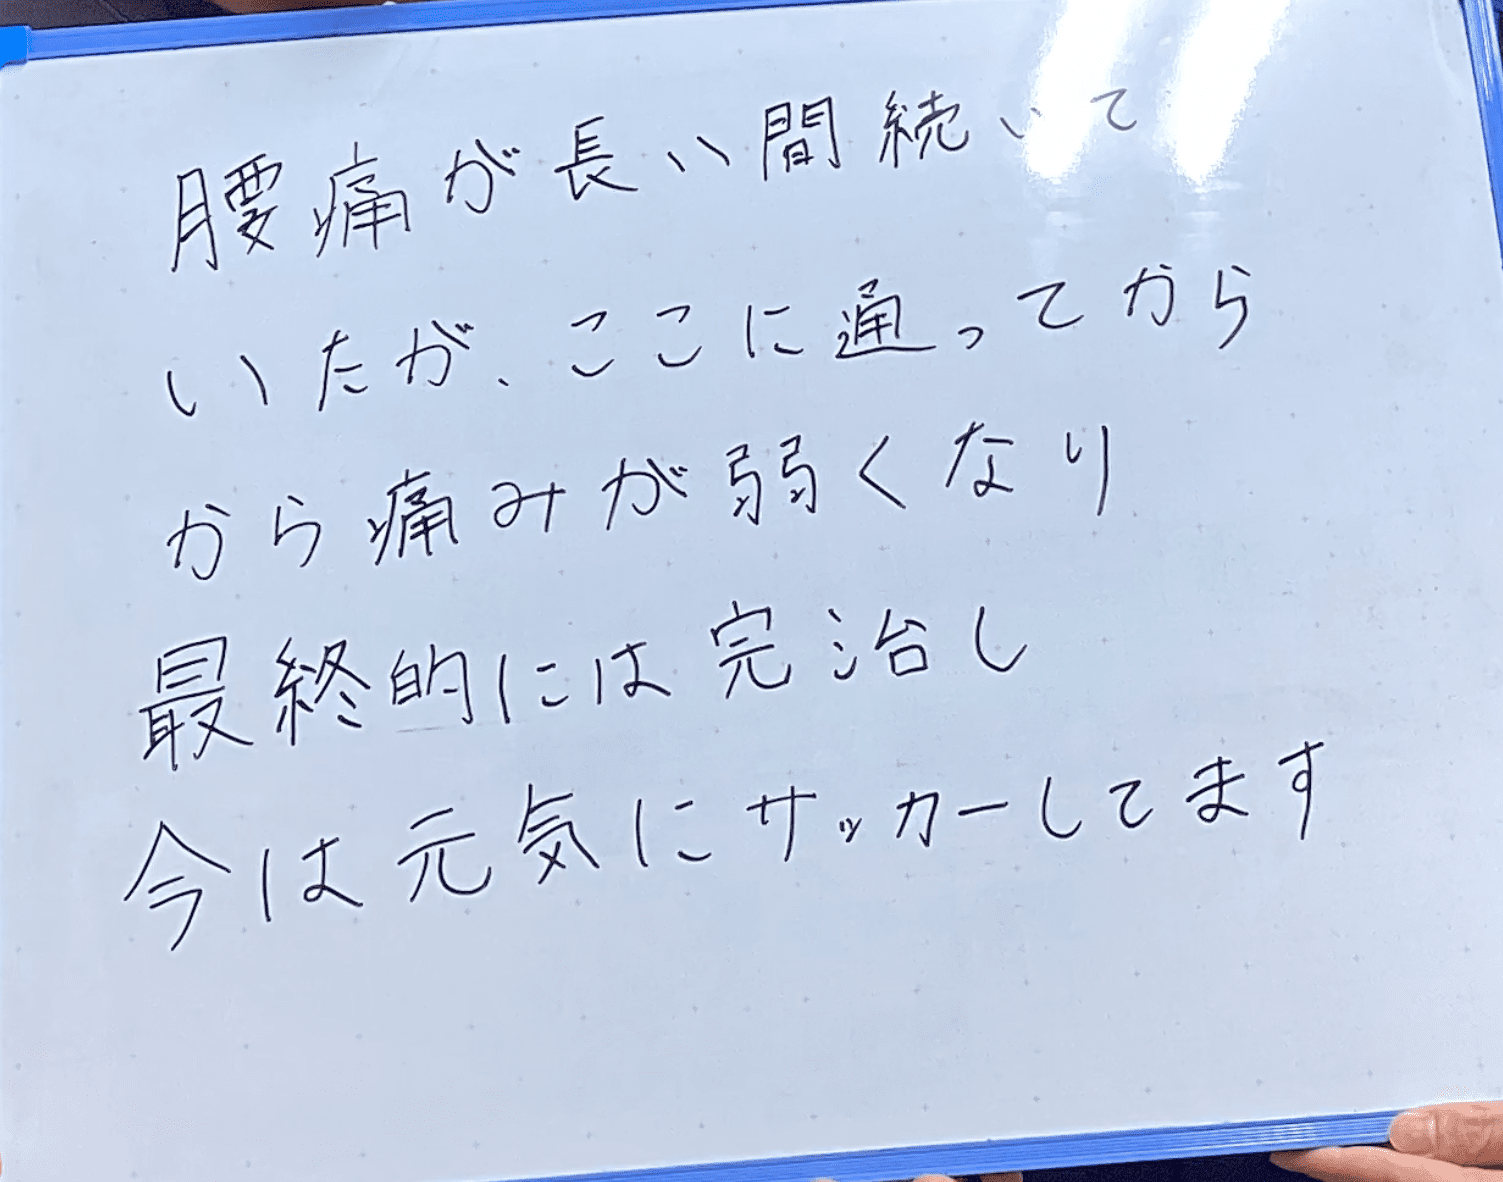 腰痛が長い間続いて
いたが、ここに通ってから
から痛みが弱くなり
最終的には完治し
今は元気にサッカーしてます